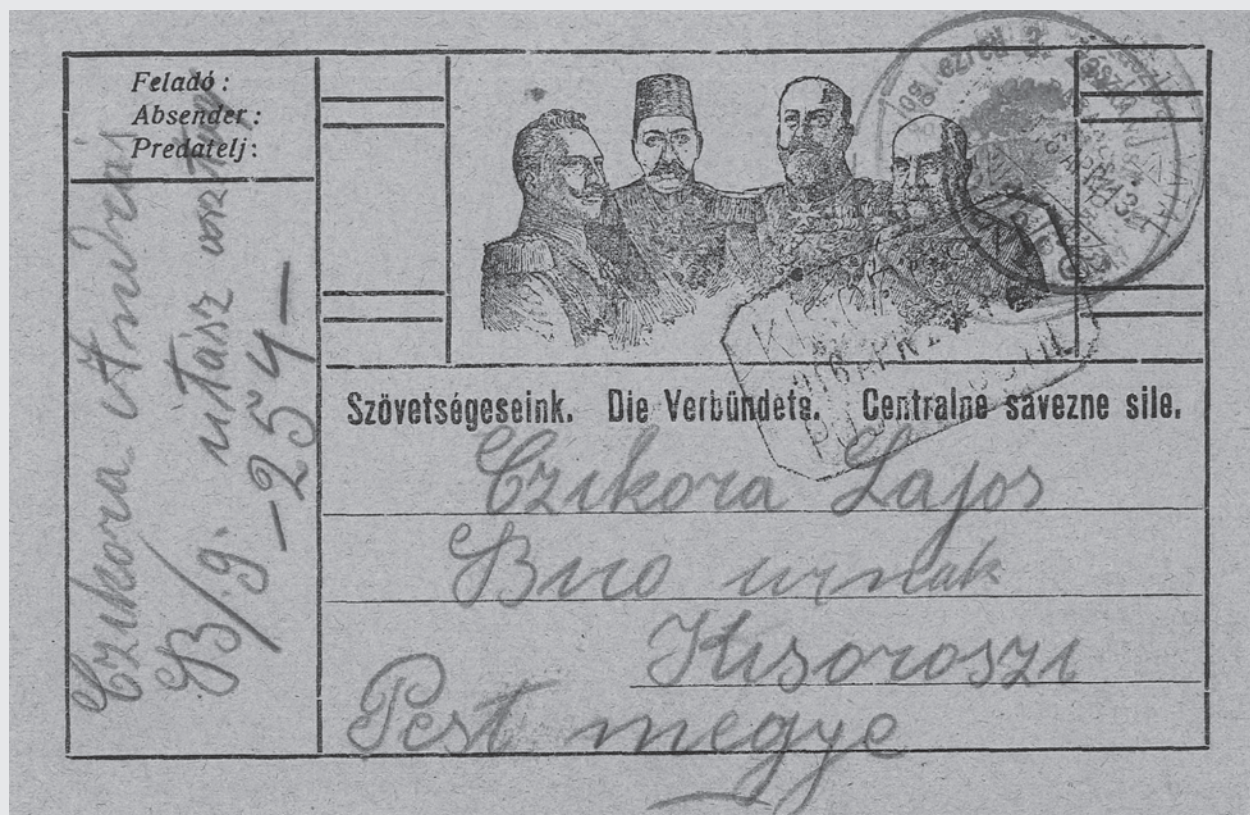 Feladó:
Absender:
Predatelj:
Czikora András
B/9. utász
-254-
Szövetségeseink. Die Verbündete. Centralne savezne sile.
Czikora Lajos
Biró urnak
Kisoroszi
Pest megye